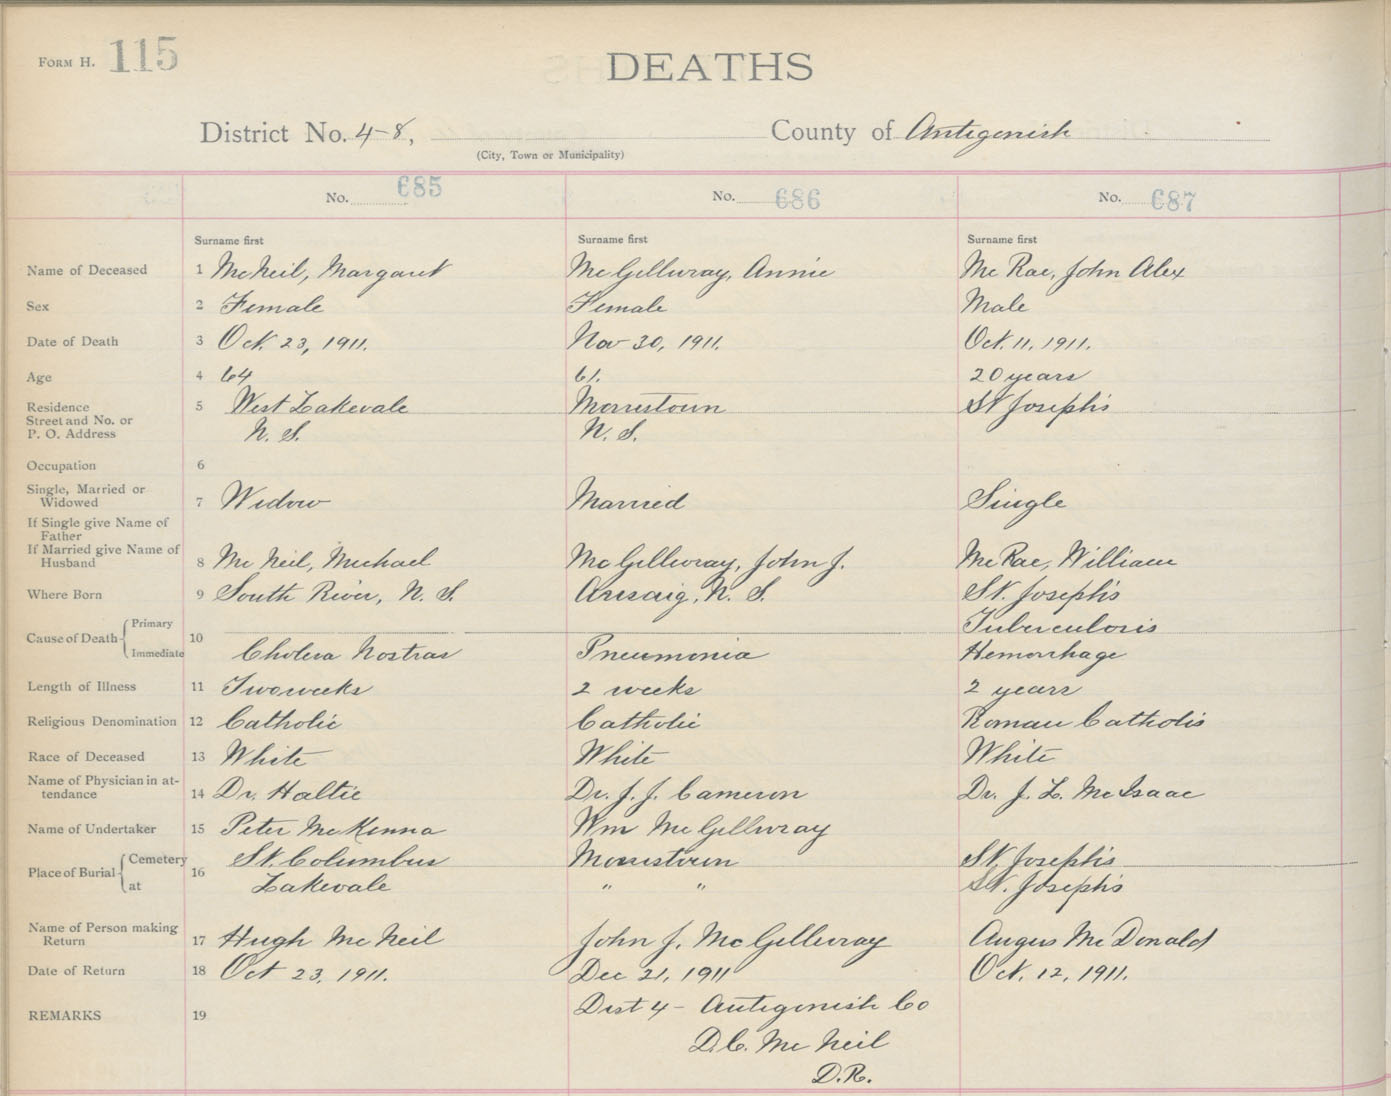 FORM H. 115
DEATHS
District No. 4-8, County of Antigonish
(City, Town or Municipality)
No. 685 No. 686 No. 687
Surname first Surname first Surname first
Name of Deceased 1 McNeil, Margaret McGillivray, Annie McRae, John Alex
Sex 2 Female Female Male
Date of Death 3 Oct. 23, 1911. Nov 30, 1911. Oct. 11, 1911.
Age 4 64 61. 20 years
Residence 5 West Lakevale Morristown St Joseph's
Street and No. or
P. O. Address N. S. N. S.
Occupation 6
Single, Married or
Widowed 7 Widow Married Single
If Single give Name of
Father
If Married give Name of
Husband 8 McNeil, Michael McGillivray, John J. McRae, William
Where Born 9 South River, N. S. Arisaig, N. S. St. Joseph's
Primary Tuberculosis
Cause of Death 10
Immediate Cholera Nostras Pneumonia Hemorrhage
Length of Illness 11 Two weeks 2 weeks 2 years
Religious Denomination 12 Catholic Catholic Roman Catholic
Race of Deceased 13 White White White
Name of Physician in at-
tendance 14 Dr. Haltie Dr. J. J. Cameron Dr. J. L. McIsaac
Name of Undertaker 15 Peter McKenna Wm McGillivray
Cemetery St. Columbus Morristown St. Joseph's
Place of Burial 16
at Lakevale " " St. Joseph's
Name of Person making
Return 17 Hugh McNeil John J. McGillivray Angus McDonald
Date of Return 18 Oct 23, 1911. Dec 21, 1911 Oct. 12, 1911.
REMARKS 19 Dist 4 - Antigonish Co
D.C. McNeil
D.R.